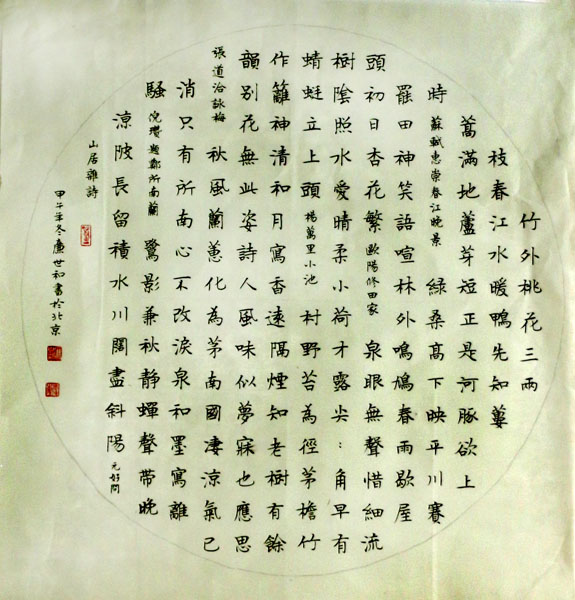 竹外桃花三兩
枝春江水暖鴨先知蔞
蒿滿地蘆芽短正是河豚欲上
時 蘇軾惠崇春江晚景 綠桑高下映平川賽
罷田神笑語喧林外鳴鳩春雨歇屋
頭初日杏花繁 歐陽修田家 泉眼無聲惜細流
樹陰照水愛晴柔小荷才露尖〻角早有
蜻蜓立上頭 楊萬里小池 村野苔為徑茅檐竹
作籬神清和月寫香遠隔煙知老樹有餘
韻別花無此姿詩人風味似夢寐也應思
張道洽詠梅 秋風蘭蕙化為茅南國淒涼氣已
消只有所南心不改淚泉和墨寫離
騷 倪瓚題鄭所南蘭 鷺影兼秋靜蟬聲帶晚
涼陂長留積水川闊盡斜陽 元好問
山居雜詩
甲午年冬盧世和書於北京